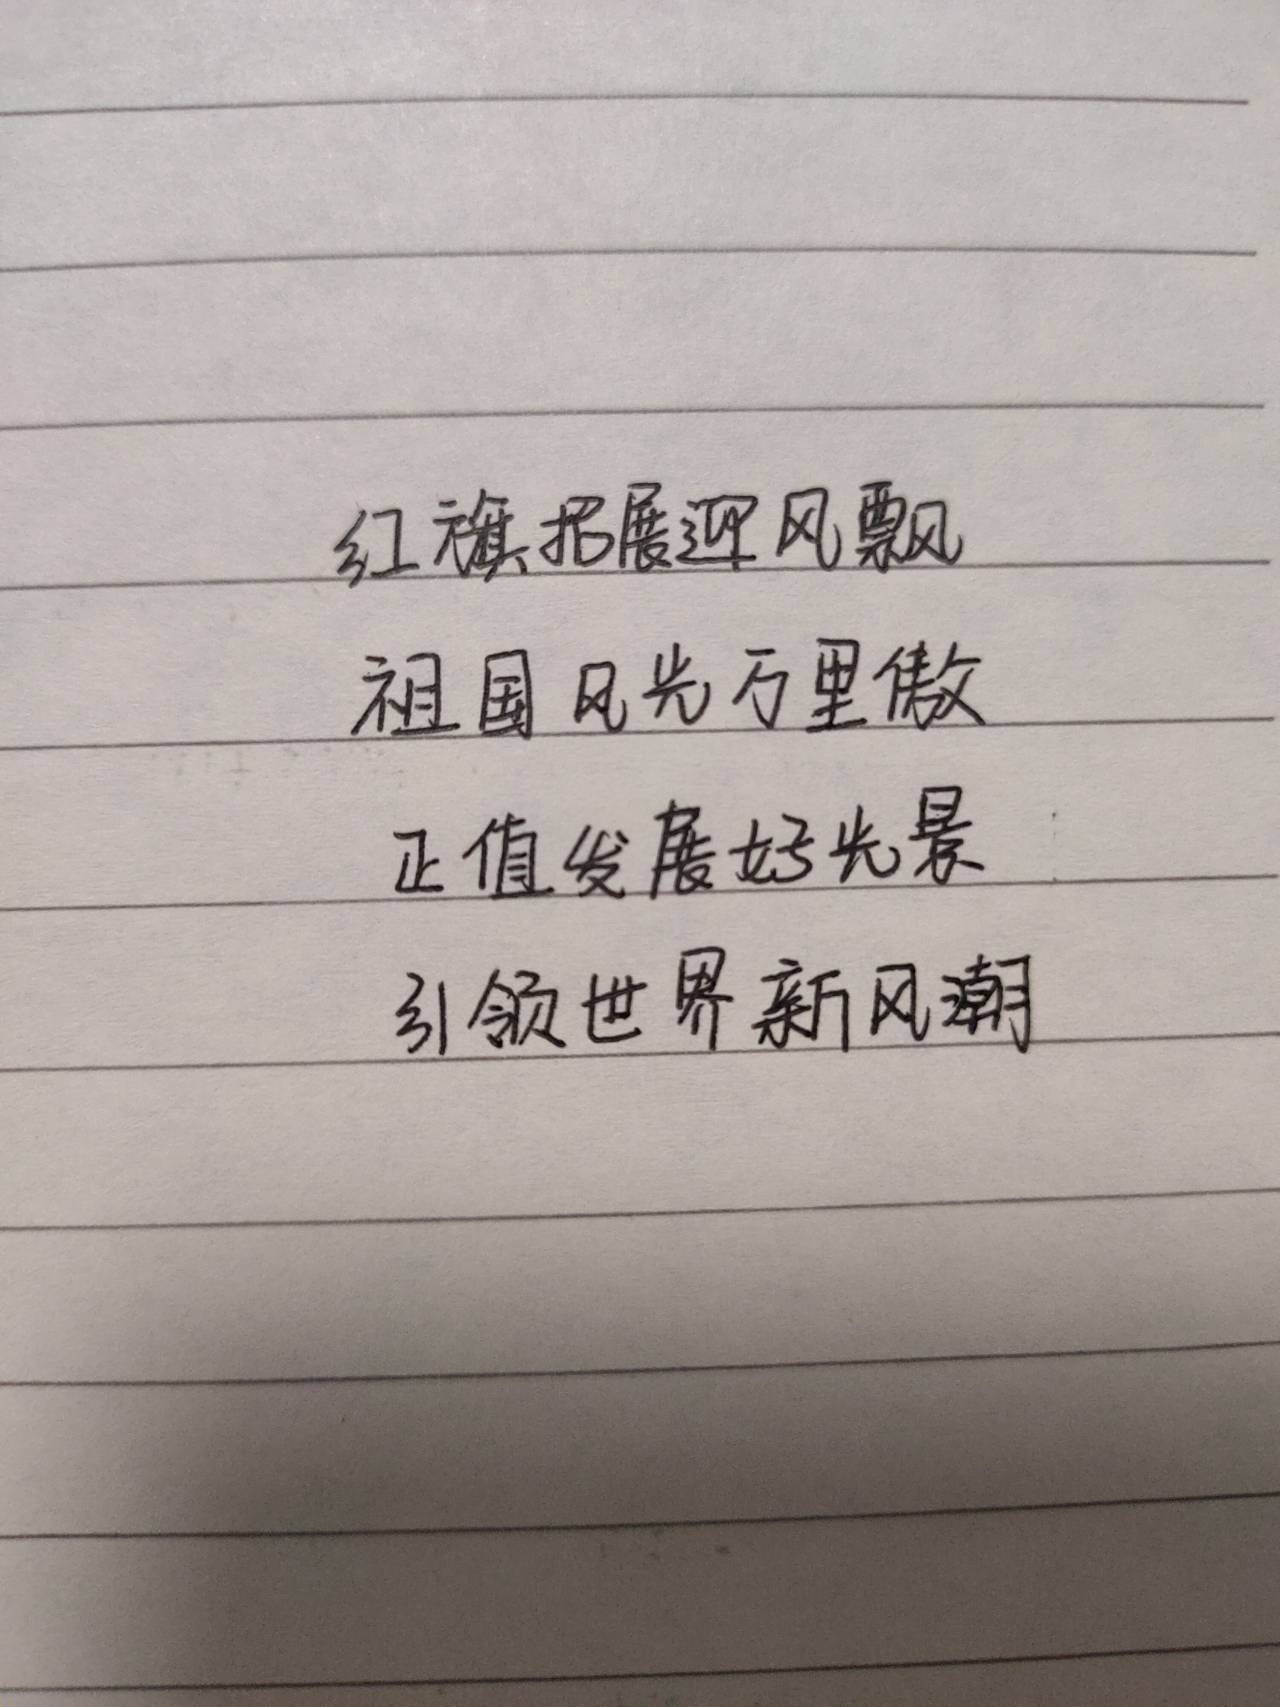 红旗招展迎风飘
祖国风光万里傲
正值发展好光景
引领世界新风潮